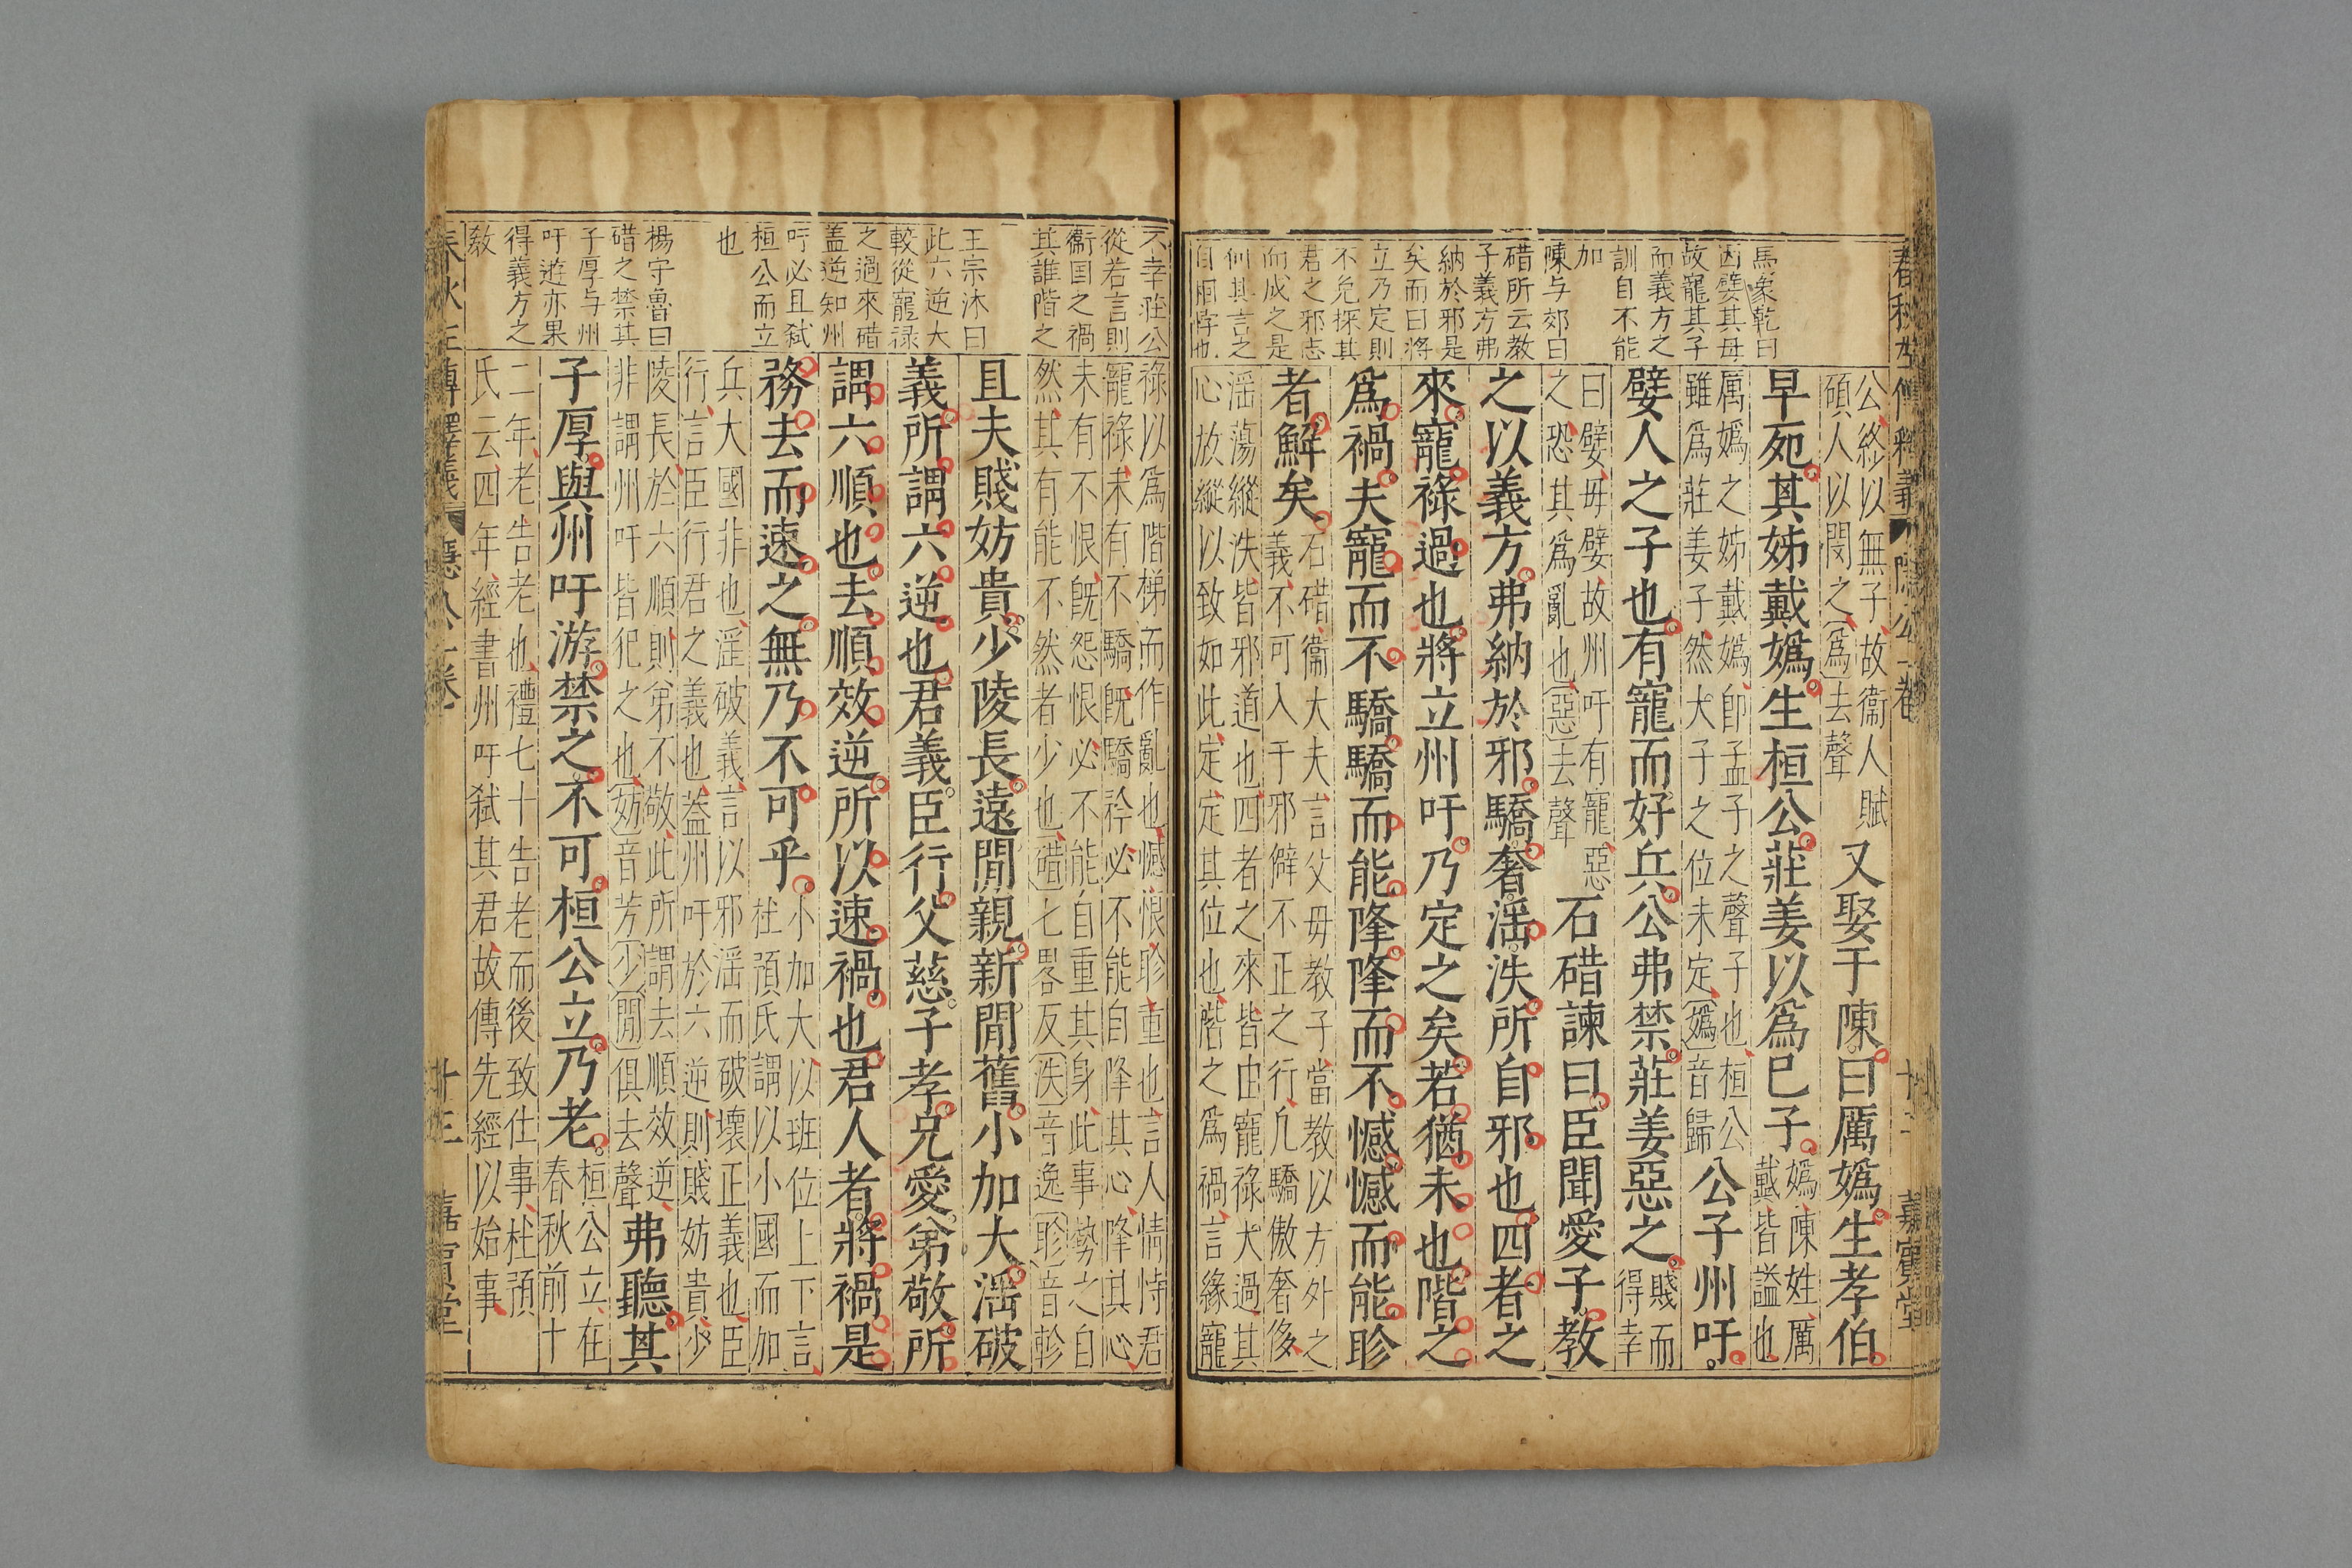 春秋左傳釋義 隱公一卷 十二 嘉賓堂
馬象乾曰
因嬖其母
故寵其子
而義方之
訓自不能
加
陳与郊曰
碏所云教
子義方弗
納於邪是
矣而曰將
立乃定則
不免探其
君之邪志
而成之是
何其言之
自相悖也
公終以無子故衞人賦
碩人以閔之爲去聲
又娶于陳曰厲嬀生孝伯
早死其姊戴嬀生桓公莊姜以爲巳子
嬀陳姓厲
戴皆謚也
厲嬀之姊戴嬀卽孟子之聲子也桓公
雖爲莊姜子然太子之位未定嬀音歸
公子州吁
嬖人之子也有寵而好兵公弗禁莊姜惡之
賤而
得幸
曰嬖毋嬖故州吁有寵惡
之恐其爲亂也惡去聲
石碏諫曰臣聞愛子教
之以義方弗納於邪驕奢淫泆所自邪也四者之
來寵祿過也將立州吁乃定之矣若猶未也階之
爲禍夫寵而不驕驕而能降降而不憾憾而能眕
者鮮矣
石碏衞大夫言父毋教子當教以方外之
義不可入于邪僻不正之行凡驕傲奢侈
淫蕩縱泆皆邪道也四者之來皆由寵祿太過其
心放縱以致如此定定其位也階之爲禍言緣寵
不幸莊公
從若言則
衞国之禍
其誰階之
王宗沐曰
此六逆大
較從寵祿
之過來碏
盖逆知州
吁必且弑
桓公而立
也
楊守魯曰
碏之禁其
子厚与州
吁遊亦果
得義方之
敎
祿以爲階梯而作亂也憾恨眕重也言人情恃君
寵祿未有不驕旣驕矜必不能自降其心降其心
未有不恨旣怨恨必不能自重其身此事勢之自
然其有能不然者少也碏七畧反泆音逸眕音軫
且夫賤妨貴少陵長遠閒親新閒舊小加大淫破
義所謂六逆也君義臣行父慈子孝兄愛弟敬所
謂六順也去順效逆所以速禍也君人者將禍是
務去而速之無乃不可乎
小加大以班位上下言
杜預氏謂以小國而加
兵大國非也淫破義言以邪淫而破壞正義也臣
行言臣行君之義也盖州吁於六逆則賤妨貴少
陵長於六順則弟不敬此所謂去順效逆
非謂州吁皆犯之也妨音芳少閒俱去聲
弗聽其
子厚與州吁游禁之不可桓公立乃老
桓公立在
春秋前十
二年老告老也禮七十告老而後致仕事杜預
氏云四年經書州吁弑其君故傳先經以始事
春秋左傳釋義 隱公一卷 十三 嘉賓堂